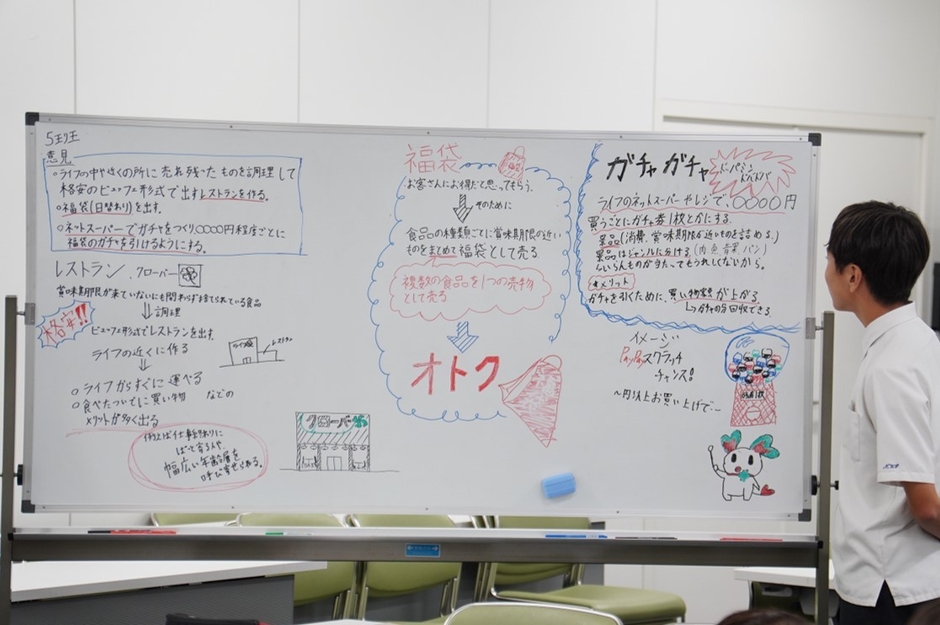 5班
意見
○ライフの中や近くの所に売れ残ったものを調理して
格安のビュッフェ形式で出すレストランを作る。
○福袋(日替わり)を出す。
○ネットスーパーでガチャをつくり○○○○円程度ごとに
福袋のガチャを引けるようにする。
レストラン クローバー
賞味期限が来ていないにも関わらず捨てられている食品
調理
格安!!
ビュッフェ形式でレストランを出す。
ライフの近くに作る
レストラン
○ライフからすぐに運べる
○食べたついでに買い物 などの
メリットが多く出る
例えば仕事終わりに
幅広い年齢層を
呼び寄せられる。
クローバー
福袋
お客さんにお得だと思ってもらう。
そのために
食品の種類ごとに賞味期限の近い
ものをまとめて福袋として売る
複数の食品を1つの売物
として売る
オトク
ガチャガチャ
ライフのネットスーパーやレジで、○○○○円
買うごとにガチャ券1枚とかにする。
景品(消費、賞味期限が近いものを詰める。)
景品はジャンルに分ける(肉 魚 野菜 パン)
いらんもんが当たってもうれしくないから。
メリット
ガチャを引くために、買い物客が上がる
↳ガチャの分回収できる
イメージ
PayPayスクラッチ
チャンス!
〜円以上お買い上げで〜